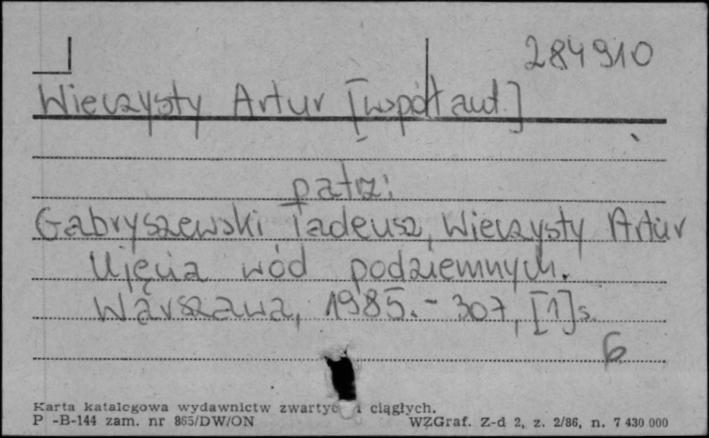 284910
Wieczysty Artur [współaut.]
patrz:
Gabryszewski Tadeusz, Wieczysty Artur
Ujęcia wód podziemnych.
Warszawa, 1985. - 307, [1] s.
6
Karta katalogowa wydawnictw zwartyc i ciągłych.
P -B-144 zam. nr 865/DW/ON WZGraf. Z-d 2, z. 2/86, n. 7 430 000